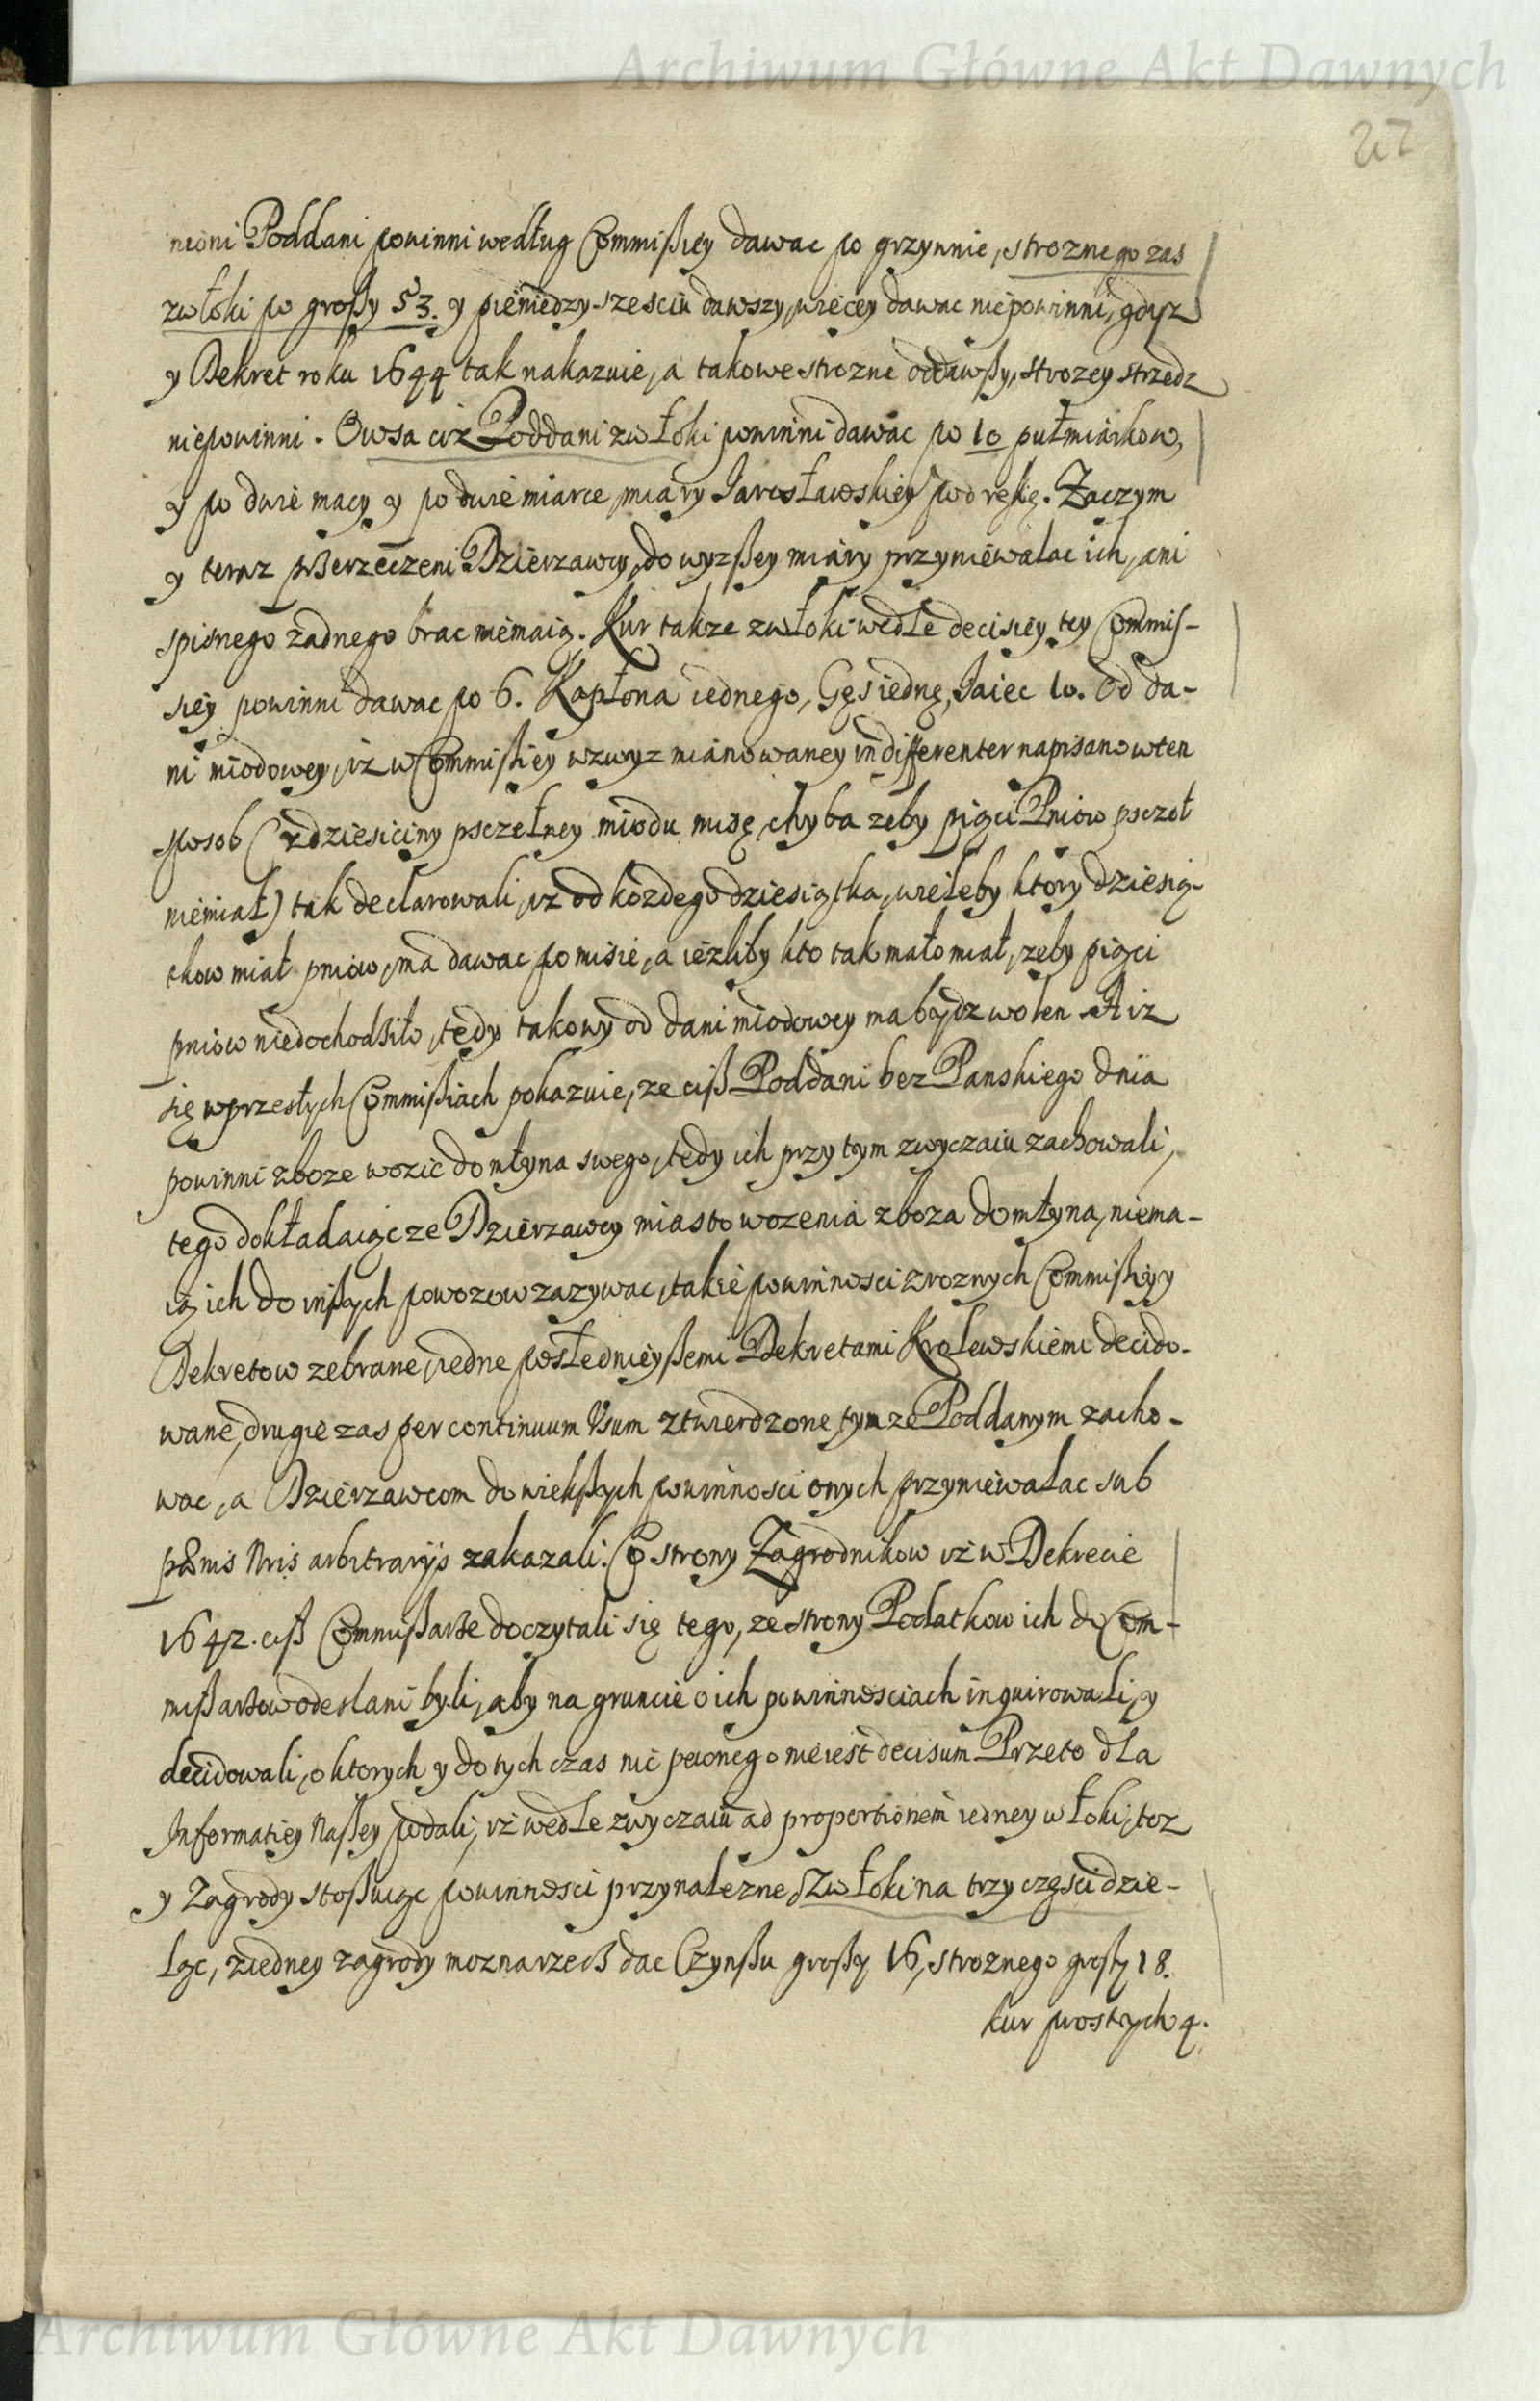 Archiwum Główne Akt Dawnych
27
nioni Poddani powinni według Commißiey dawac po grzywnie, stroznego zas
zwłoki po großy 53. y pieniedzy szesciu dawszy, wiecey dawac niepowinni, gdysz
y Dekret roku 1644 tak nakazuie, a takowe strozne oddawßy, strozey strzedz
niepowinni. Owsa ciz Poddani zwłoki powinni dawac po 10 pułmiarkow,
y po dwie macy y po dwie miarce, miary Jarosławskiey pod rękę. Zaczym
y teraz przerzeczeni Dzierzawcy, do wyzßey miary przyniewalac ich, ani
spisnego zadnego brac niemaią. Kur takze zwłoki wedle decisiey tey Commis-
siey powinni dawac po 6. Kapłona iednego, Gęs iednę, Jaiec 10. Od da-
ni miodowey, iz w Commißiey wzwyz mianowaney indifferenter napisano wten
sposob (zdziesiciny pszczelney miodu misę, chyba zeby piąci Pniow pszczoł
niemiał) tak declarowali, iz od kozdego dziesiątka, wieleby ktory dziesią-
tkow miał pniow, ma dawac po misie, a iezliby kto tak mało miał, zeby piąci
pniow niedochodziło, tedy takowy od dani miodowey ma bydz wolen. A iz
się wprzeszłych Commißiach pokazuie, ze ciß Poddani bez Panskiego dnia
powinni zboze wozic do młyna swego, tedy ich przy tym zwyczaiu zachowali,
tego dokładaiąc ze Dzierzawcy miasto wozenia zboza do młyna, niema-
ią ich do inßych powozow zazywac, takie powinnosci zroznych Commißiy y
Dekretow zebrane, iedne poslednieyßemi Dekretami Krolewskiemi decido-
wane, drugie zas per continuum Usum ztwierdzone, tymze Poddanym zacho-
wac, a Dzierzawcom do wiekßych powinnosci onych przyniewalac sub
pœnis Nris arbitrarijs zakazali. Co strony Zagrodnikow iz w Dekrecie
1642. ciß Commißarze doczytali się tego, ze strony Podatkow ich do Com-
mißarzow odeslani byli, aby na gruncie o ich powinnosciach inquirowali, y
decidowali, o ktorych y do tych czas nic pewnego nieiest decisum Przeto dla
Informatiey Naßey podali, iz wedle zwyczaiu ad proportionem iedney włoki, toz
y Zagrody stoßuiąc powinnosci przynalezne, Zwłoki na trzy częsci dzie-
ląc, ziedney zagrody mozna rzecz dac Czynßu großy 16, stroznego großy 18.
kur prostych 4.
Archiwum Główne Akt Dawnych